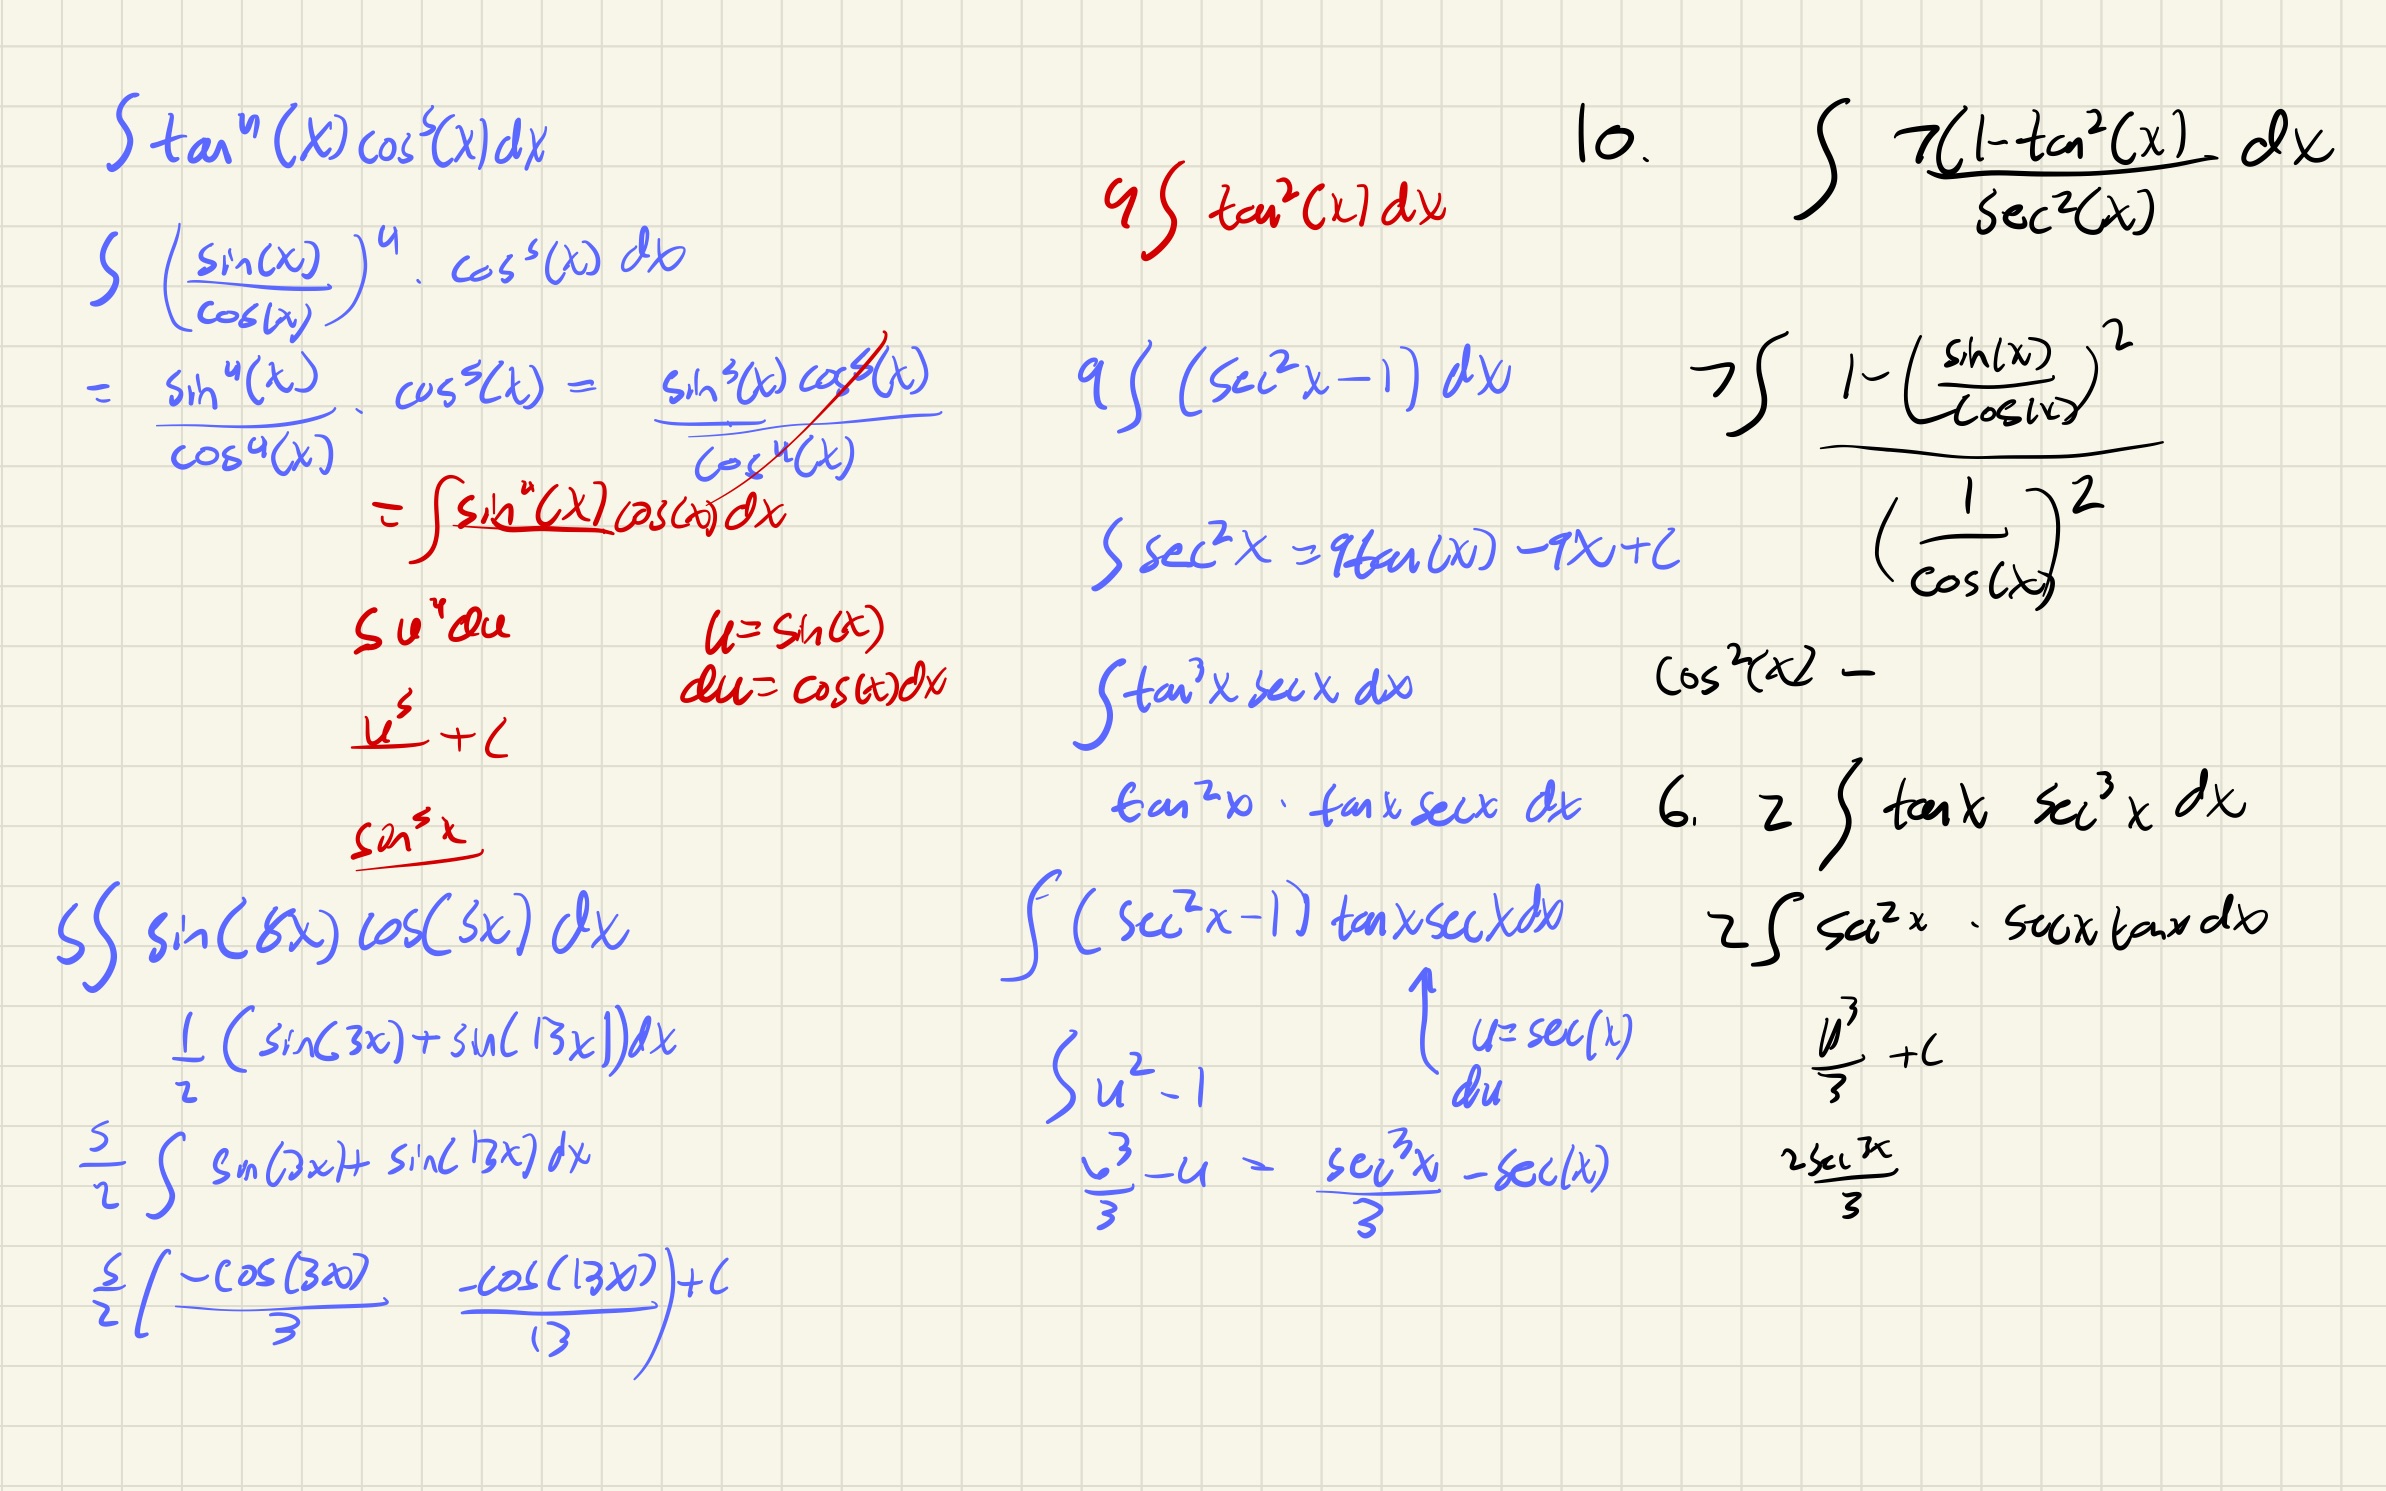 ∫ tan⁴(x) cos⁵(x) dx
∫ (sin(x)/cos(x))⁴ · cos⁵(x) dx
= sin⁴(x)/cos⁴(x) · cos⁵(x) = sin³(x) cos⁵(x)/cos⁴(x)
= ∫ sin⁴(x) cos(x) dx
∫ u⁴ du
u = sin(x)
du = cos(x) dx
u⁵ + C
sin⁵ x
5∫ sin(8x) cos(5x) dx
1/2 (sin(3x) + sin(13x)) dx
5/2 ∫ sin(3x) + sin(13x) dx
5/2 (-cos(3x)/3 -cos(13x)/13) + C
9∫ tan²(x) dx
9∫ (sec²x - 1) dx
∫ sec²x = 9tan(x) - 9x + C
∫ tan³x sec x dx
tan²x · tan x sec x dx
∫ (sec²x - 1) tan x sec x dx
u = sec(x)
du
∫ u² - 1
u³/3 - u = sec³x/3 - sec(x)
10. ∫ 7(1 - tan²(x)/sec²(x) dx
7∫ 1 - (sin(x)/cos(x))² / (1/cos(x))²
cos²(x) -
6. 2 ∫ tan x sec³ x dx
2∫ sec² x · sec x tan x dx
u³/3 + C
2sec³x/3